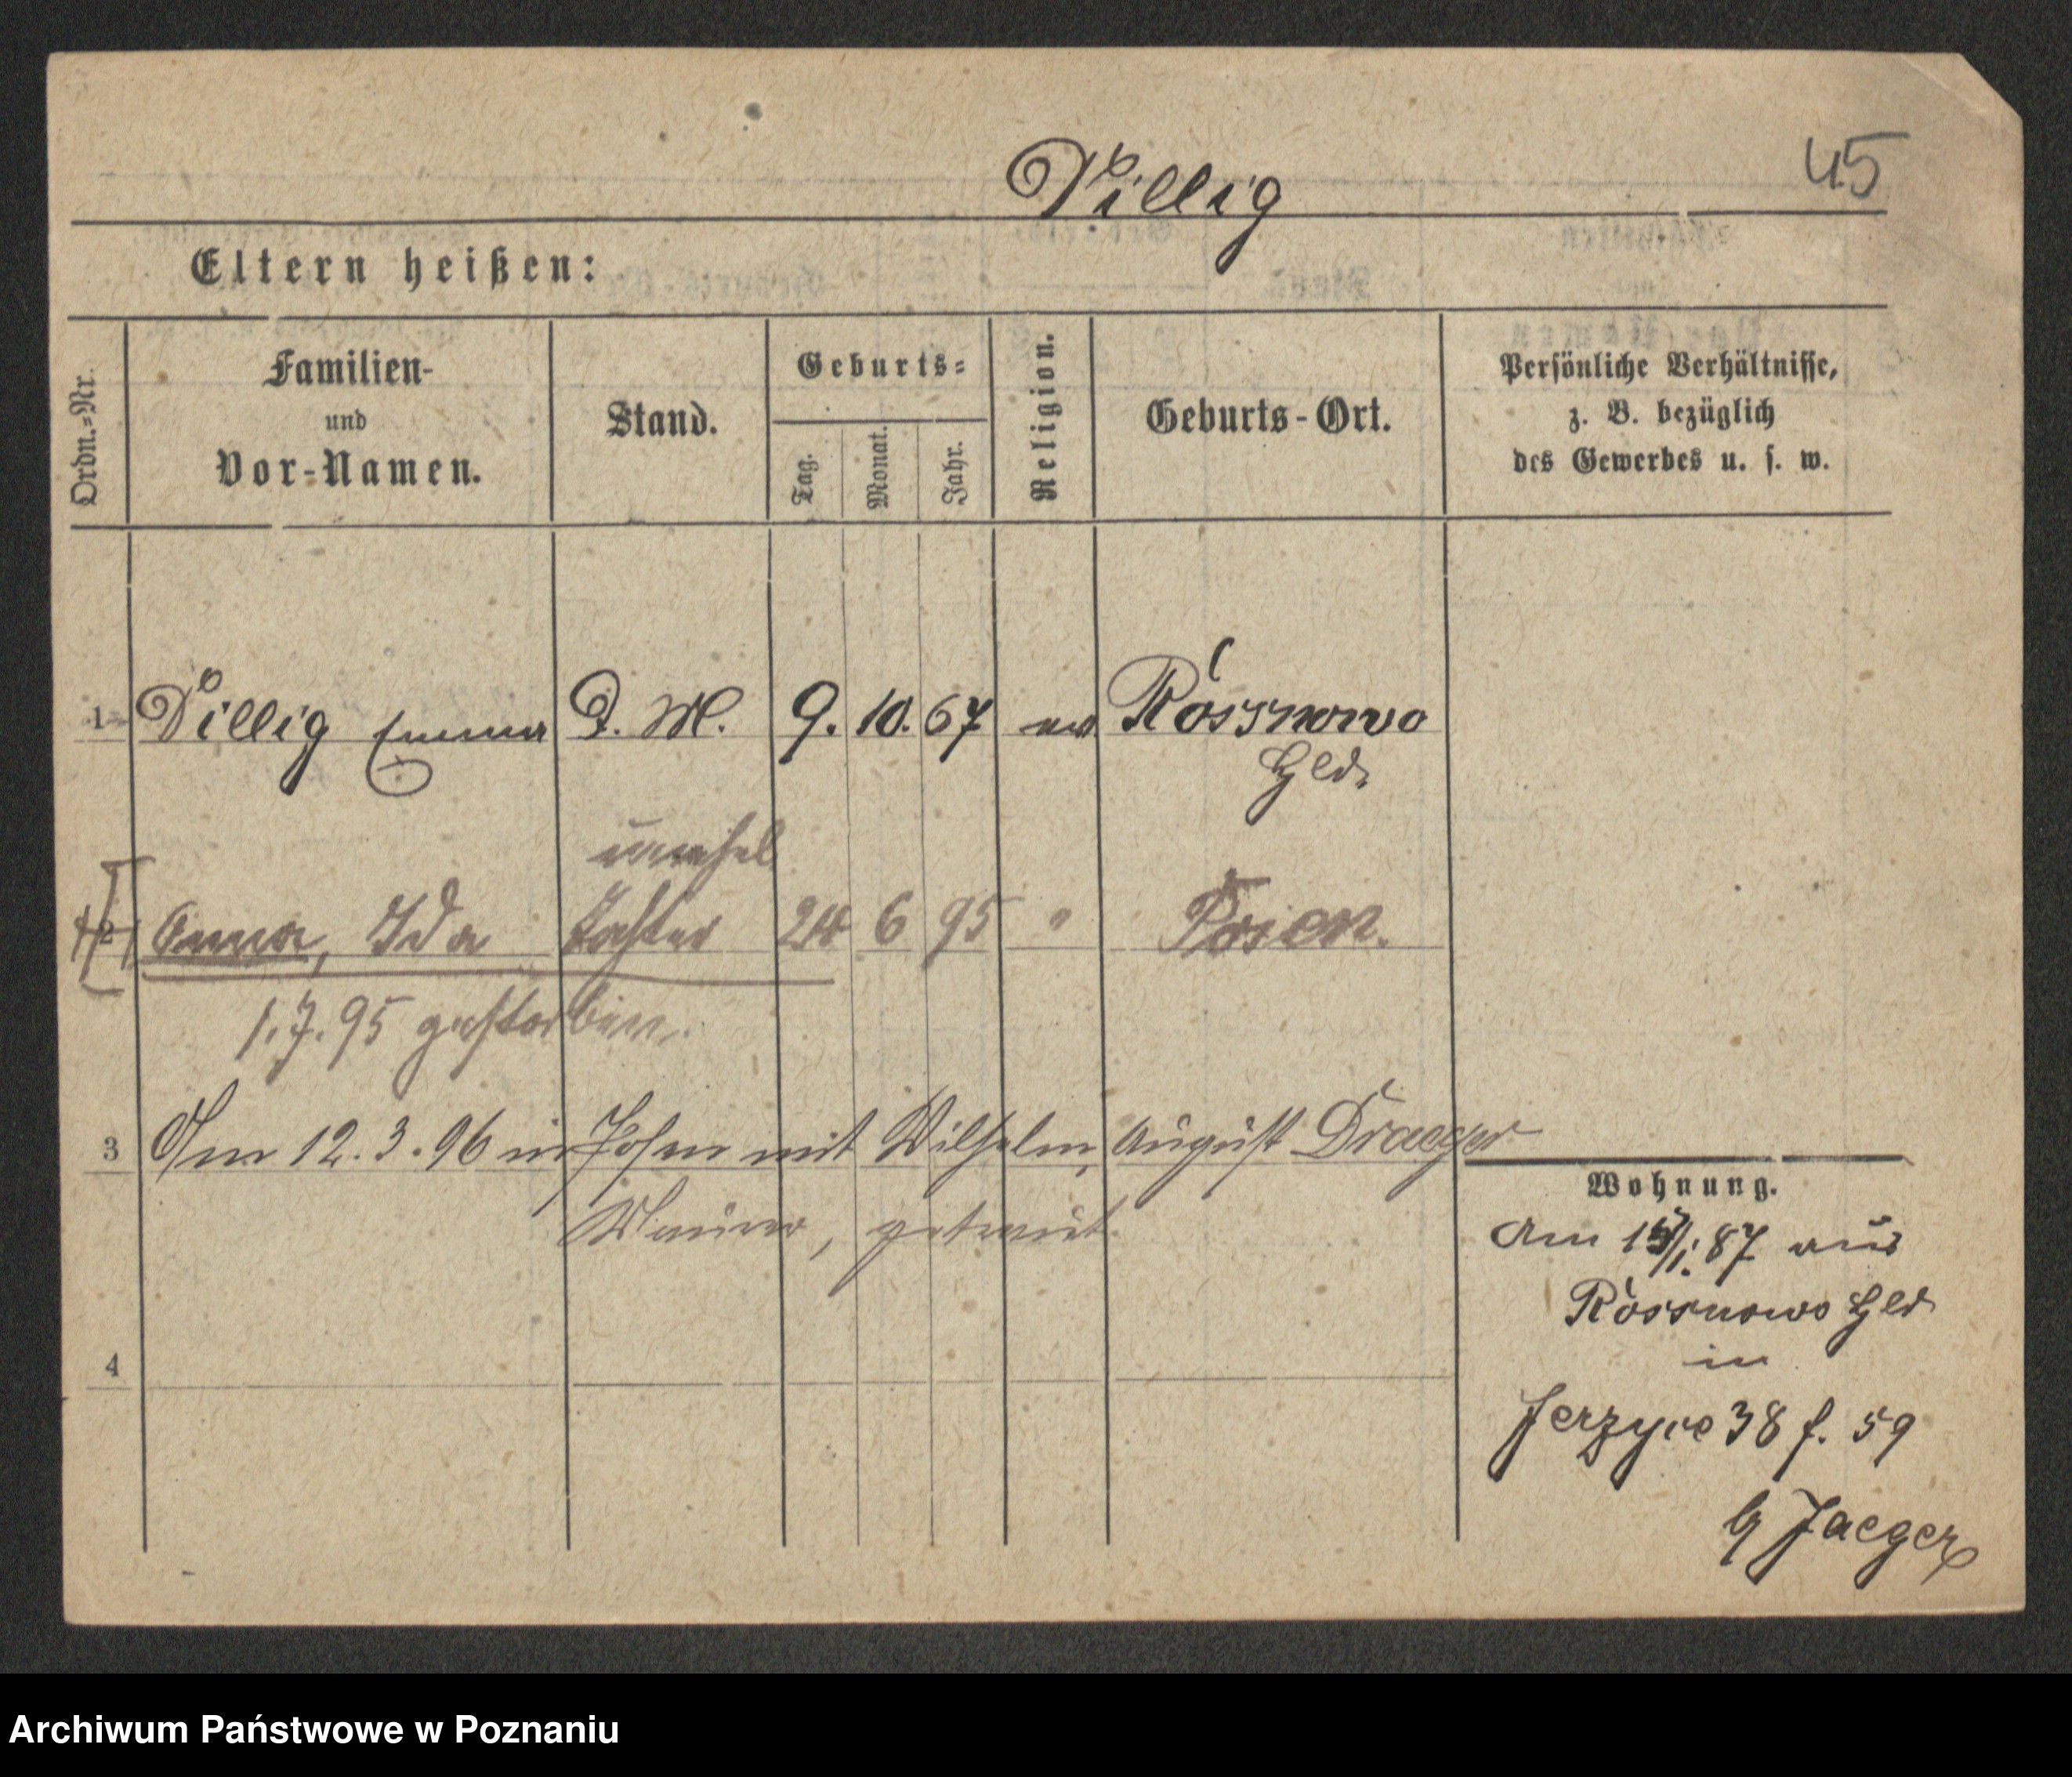 45
Villig
Eltern heißen:
Ordn.=Nr.
Familien-
und
Vor-Namen.
Stand.
Geburts=
Tag.
Monat.
Jahr.
Religion.
Geburts-Ort.
Persönliche Verhältnisse,
z. B. bezüglich
des Gewerbes u. s. w.
1 Villig Emma D. M. 9. 10. 67 ev Rossnowo
Hld.
unehel
2 Anna, Ida Tochter 24 6 95 " Posen.
1.7.95 gestorben.
3 Am 12.3.96 in Posen mit Wilhelm, August Draeger
Maurer, getraut.
4
Wohnung.
Am /1. 87 aus
Rossnowo Hld
in
Jerzyce 38 f. 59
b Jaeger
Archiwum Państwowe w Poznaniu